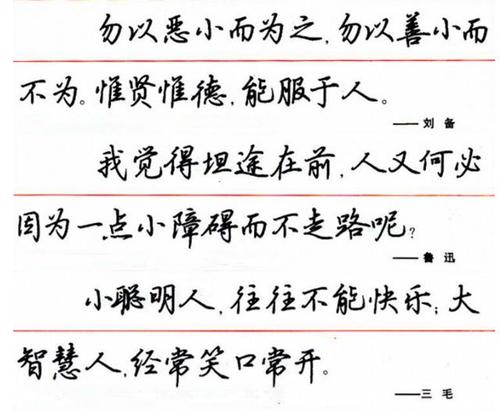 勿以恶小而为之,勿以善小而
不为。惟贤惟德,能服于人。
——刘备
我觉得坦途在前,人又何必
因为一点小障碍而不走路呢?
——鲁迅
小聪明人,往往不能快乐;大
智慧人,经常笑口常开。
——三毛